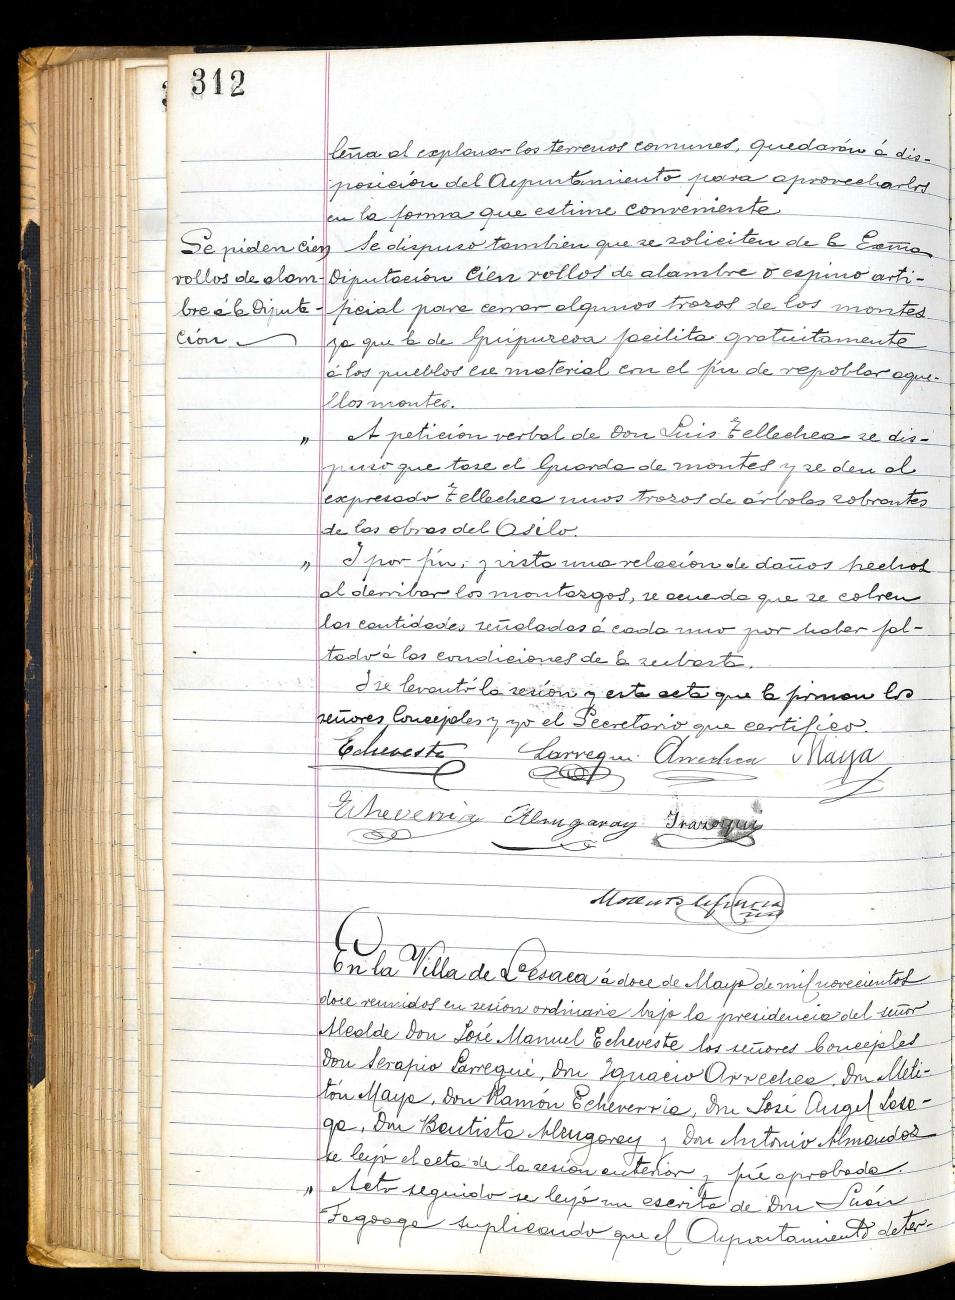 312
leña al explanar los terrenos comunes, quedarán á dis-
posición del Ayuntamiento para aprovecharlos
en la forma que estime conveniente
Se piden cien
rollos de alam-
bre á la Diputa-
ción
Se dispuso también que se soliciten de la Exma
Diputación cien rollos de alambre o espino arti-
ficial para cerrar algunos trozos de los montes
ya que la de Guipuzcoa facilita gratuitamente
á los pueblos ese material con el fin de repoblar aque-
llos montes.
" A petición verbal de Don Luis Tellechea se dis-
puso que tase el Guarda de montes y se den al
expresado Tellechea unos trozos de árboles sobrantes
de las obras del Asilo.
" Y por fin, y vista una relación de daños hechos
al derribar los montazgos, se acuerda que se cobren
las cantidades señaladas á cada uno por haber fal-
tado á las condiciones de la subasta.
Y se levantó la sesión y esta acta que la firman los
señores Concejales y yo el Secretario que certifico.
Echeveste Larregui Arrechea Maya
Echeverria Alzugaray Irazoqui
En la Villa de Lesaca á doce de Mayo de mil novecientos
doce reunidos en sesión ordinaria bajo la presidencia del señor
Alcalde Don José Manuel Echeveste los señores Concejales
Don Serapio Larregui, Don Ignacio Arrechea, Don Meli-
tón Maya, Don Ramón Echeverria, Don José Angel Lasa-
ga, Don Bautista Alzugaray y Don Antonio Almandoz
se leyó el acta de la sesión anterior y fué aprobada.
" Acto seguido se leyó un escrito de Don Juán
Fagoaga suplicando que el Ayuntamiento deter-